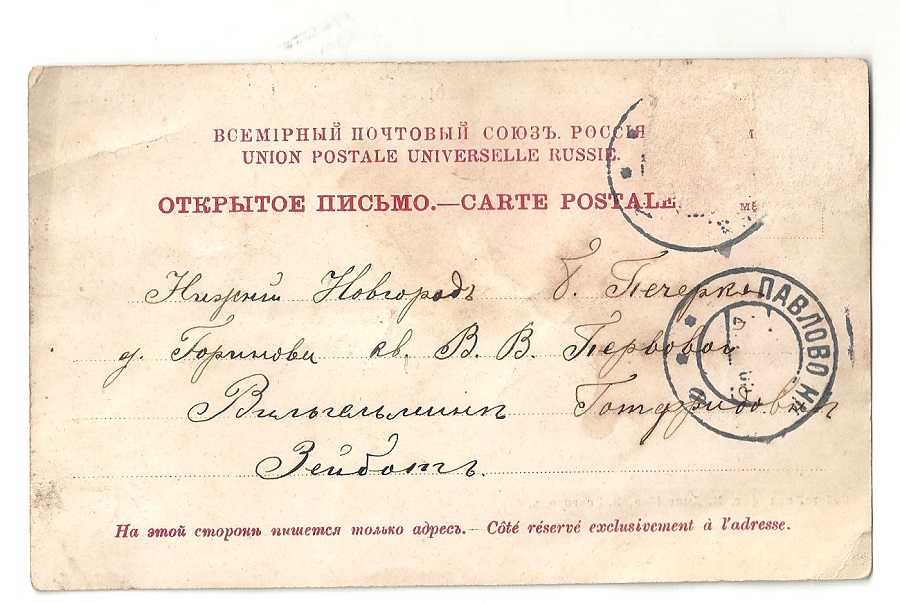 ВСЕМІРНЫЙ ПОЧТОВЫЙ СОЮЗЪ. РОССІЯ
UNION POSTALE UNIVERSELLE RUSSIE.
ОТКРЫТОЕ ПИСЬМО.—CARTE POSTALE.
Нижній Новгородъ б. Печерка
ПАВЛОВО НИ
д. Горинова кв. В. В. Первовой
Вильгельминѣ Готфридовнѣ
Зейботъ.
На этой сторонѣ пишется только адресъ.—Côté réservé exclusivement à l'adresse.